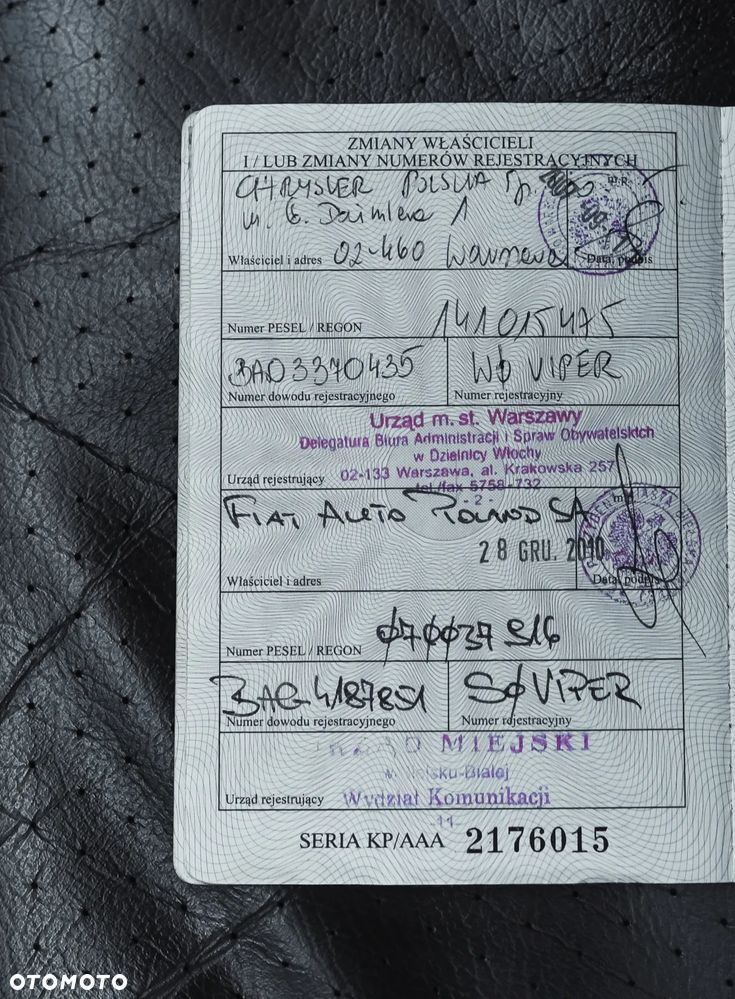 ZMIANY WŁAŚCICIELI
I / LUB ZMIANY NUMERÓW REJESTRACYJNYCH
CHRYSLER POLSKA Sp.
ul. G. Daimlera 1
02-460 Warszawa
Właściciel i adres
Data, podpis
141015475
Numer PESEL / REGON
BAD3370435
W0 VIPER
Numer dowodu rejestracyjnego
Numer rejestracyjny
Urząd m. st. Warszawy
Delegatura Biura Administracji i Spraw Obywatelskich
w Dzielnicy Włochy
02-133 Warszawa, al. Krakowska 257
tel./fax 5758-732
Urząd rejestrujący
- 2 -
FIAT AUTO POLAND SA
28 GRU. 2010
Właściciel i adres
Data, podpis
070037916
Numer PESEL / REGON
BAG4187851
S0 VIPER
Numer dowodu rejestracyjnego
Numer rejestracyjny
MIEJSKI
Wydział Komunikacji
Urząd rejestrujący
11
SERIA KP/AAA 2176015
OTOMOTO